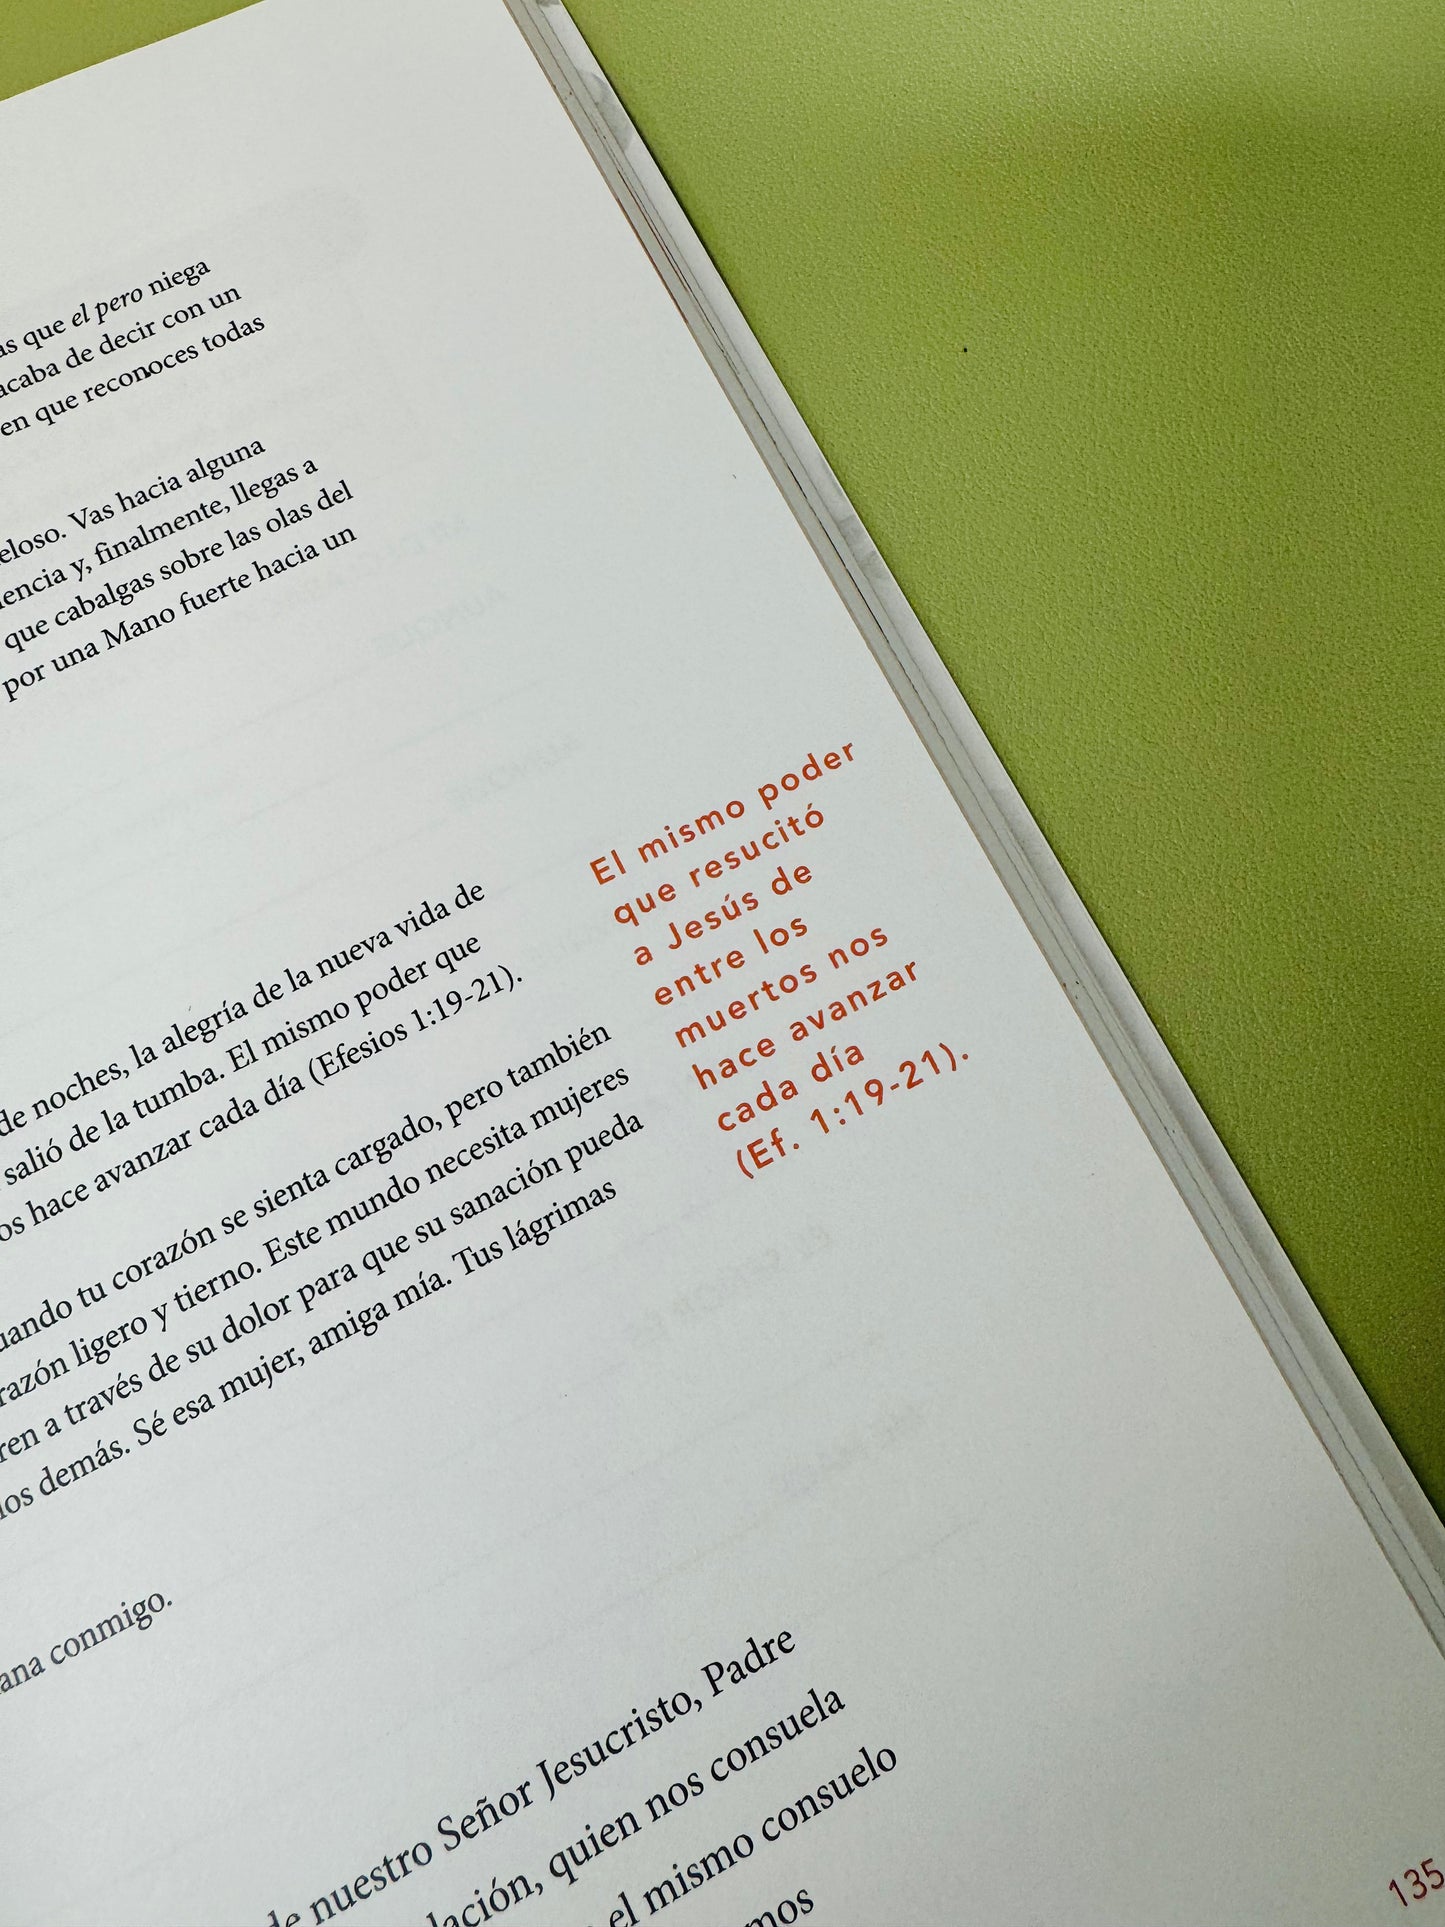 que el pero niega
acaba de decir con un
en que reconoces todas
Vas hacia alguna
y, finalmente, llegas a
que cabalgas sobre las olas del
por una Mano fuerte hacia un
de noches, la alegría de la nueva vida de
salió de la tumba. El mismo poder que
hace avanzar cada día (Efesios 1:19-21).
tu corazón se sienta cargado, pero también
ligero y tierno. Este mundo necesita mujeres
a través de su dolor para que su sanación pueda
los demás. Sé esa mujer, amiga mía. Tus lágrimas
El mismo poder
que resucitó
a Jesús de
entre los
muertos nos
hace avanzar
cada día
(Ef. 1:19-21).
conmigo.
de nuestro Señor Jesucristo, Padre
quien nos consuela
el mismo consuelo
135